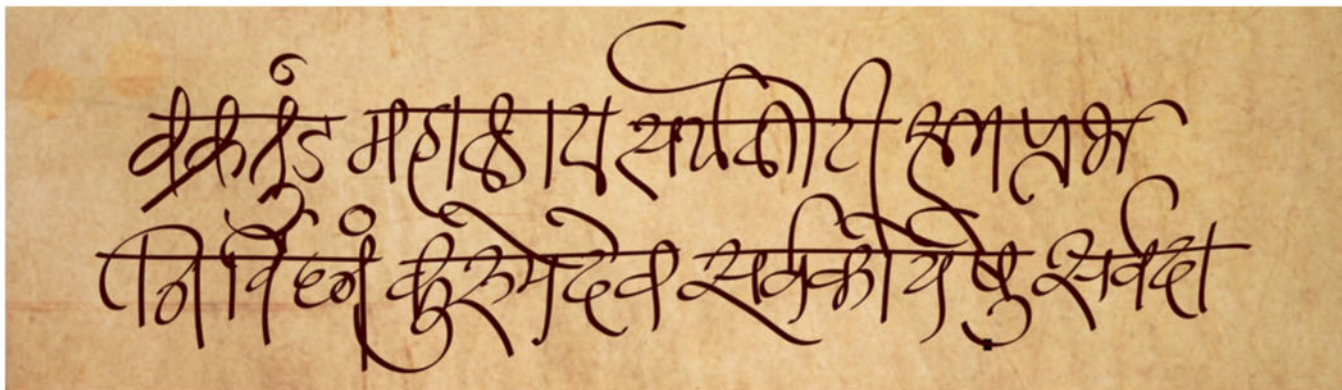 वक्रतुंड महाकाय सर्यकोटी समप्रभ
निर्विघ्नं कुरुमेदेव सर्वकार्येषु सर्वदा